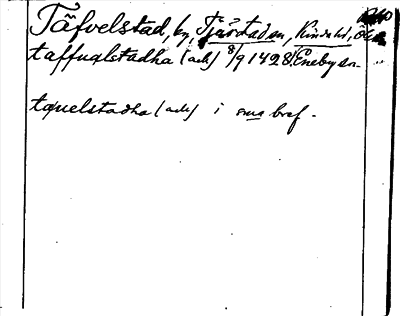 Täfvelstad, by, Tjärstad sn, Kinds hd, Ög.
taffualstadha (ack) 8/9 1428 Eneby sn.
tquelstadha (ack) i sma bref.